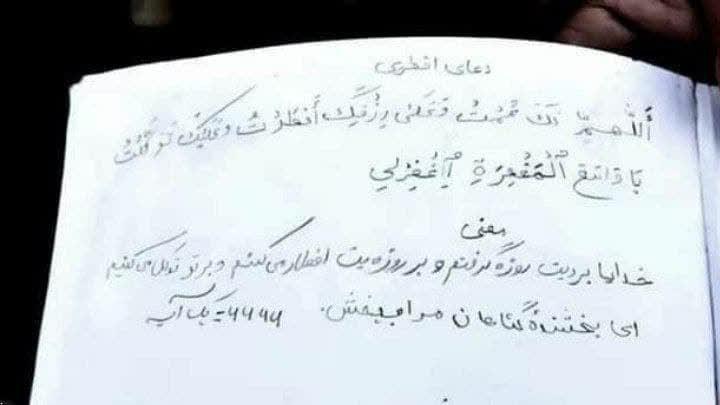 دعای افطری
أَللّٰهمَّ لَکَ صُمْتُ وَعَلیٰ رِزْقِکَ أَفْطَرْتُ وَعَلَیْکَ تَوَکَّلْتُ
یَا وَاسِعَ ٱلْمَغْفِرَةِ ٱغْفِرْلِي
معنی
خدایا برایت روزه گرفتم و بر روزیت افطار می کنم و بر تو توکل می کنیم
ای بخشندهٔ گناهان مرا ببخش.